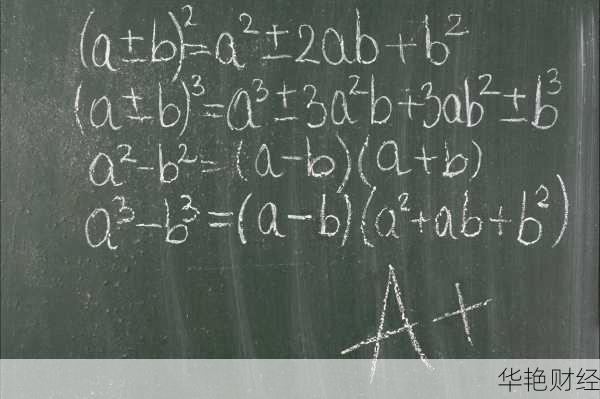 (a±b)²=a²±2ab+b²
(a±b)³=a³±3a²b+3ab²±b³
a²-b²=(a-b)(a+b)
a³-b³=(a-b)(a²+ab+b²)
A+
华艳财经